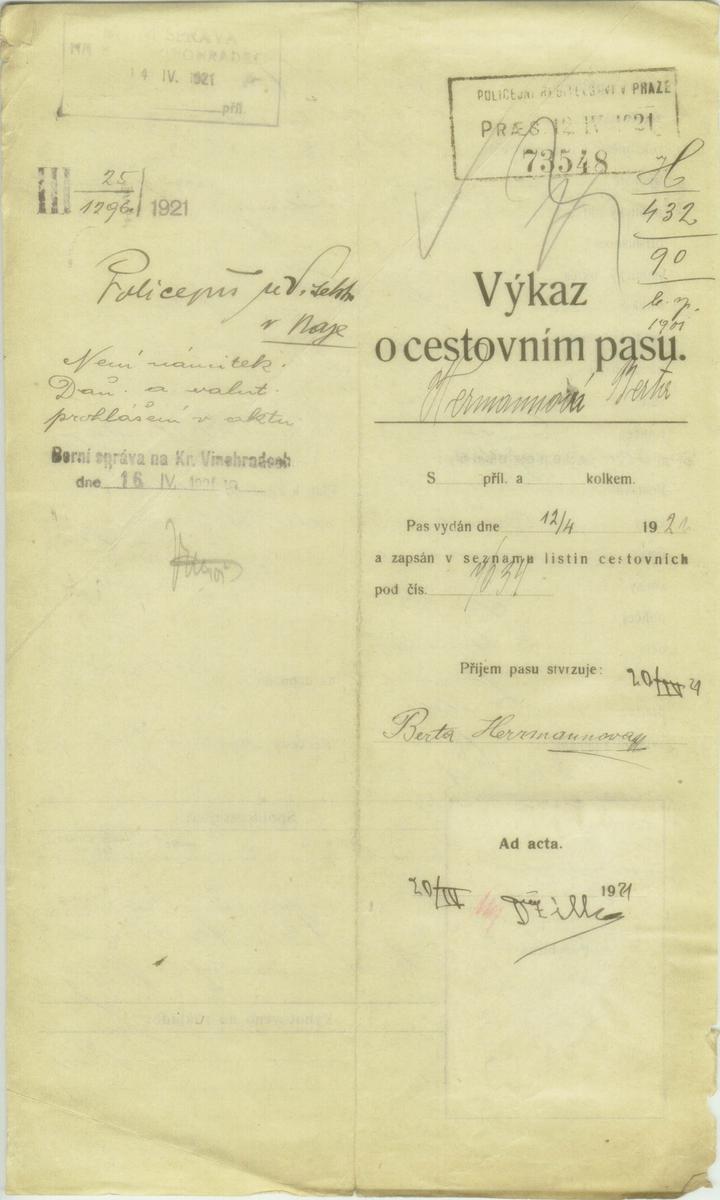 14 IV. 1921
příl.
III 25
1296 1921
v Praze
Není námitek.
Daň. a valut.
prohlášení v aktu
Berní správa na Kr. Vinohradech
dne 16 IV. 1921
POLICEJNÍ ŘEDITELSTVÍ V PRAZE
PRÆS 12 IV 1921
73548
H
432
90
1901
Výkaz
o cestovním pasu.
Hermannová Berta
S příl. a kolkem.
Pas vydán dne 12/4 1921
a zapsán v seznamu listin cestovních
pod čís.
Příjem pasu stvrzuje: 20/IV 21
Berta Herrmannova
Ad acta.
20/IV 1921